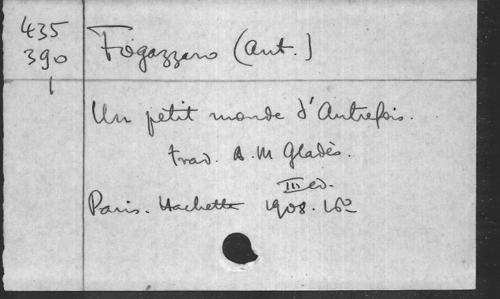 435
390
1
Fogazzaro (Ant.)
Un petit monde d'Autrefois.
trad. A. M Gladès.
III ed.
Paris. Hachette 1908. 16º